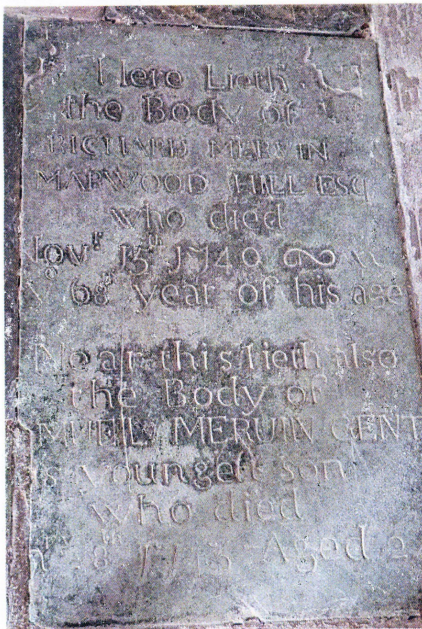 Here Lieth
the Body of
RICHARD MERVIN
MARWOOD HILL ESQ
who died
Novr 15th 1740
ye 68 year of his age
Near this Lieth also
the Body of
MERVIN GENT
youngest son
who died
28th Aged